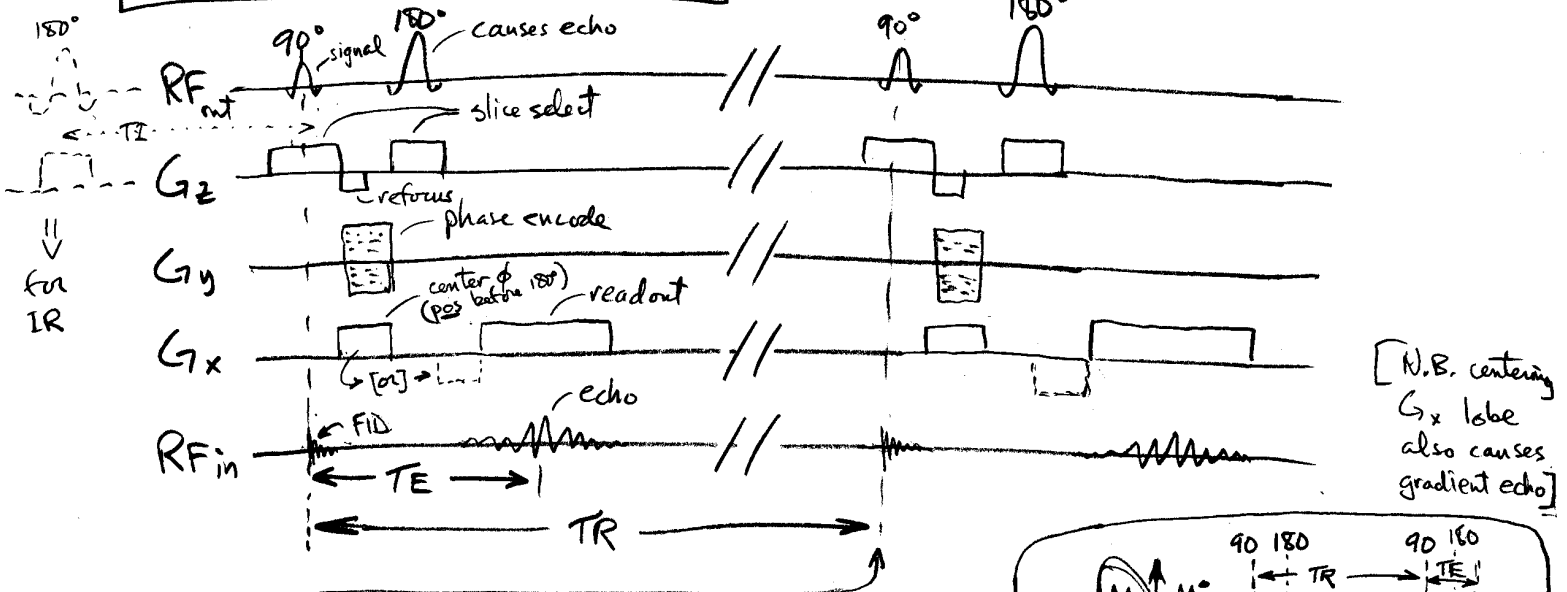 180° 90° 180° causes echo 90° 180°
signal
RFout
TI slice select
Gz
refocus
phase encode
⇓
for
IR
Gy
center ϕ
(pos before 180°)
readout
Gx
↳ [or] →
echo
FID
RFin
TE
TR
[N.B. centering
Gx lobe
also causes
gradient echo]
90 180 90 180
TR TE